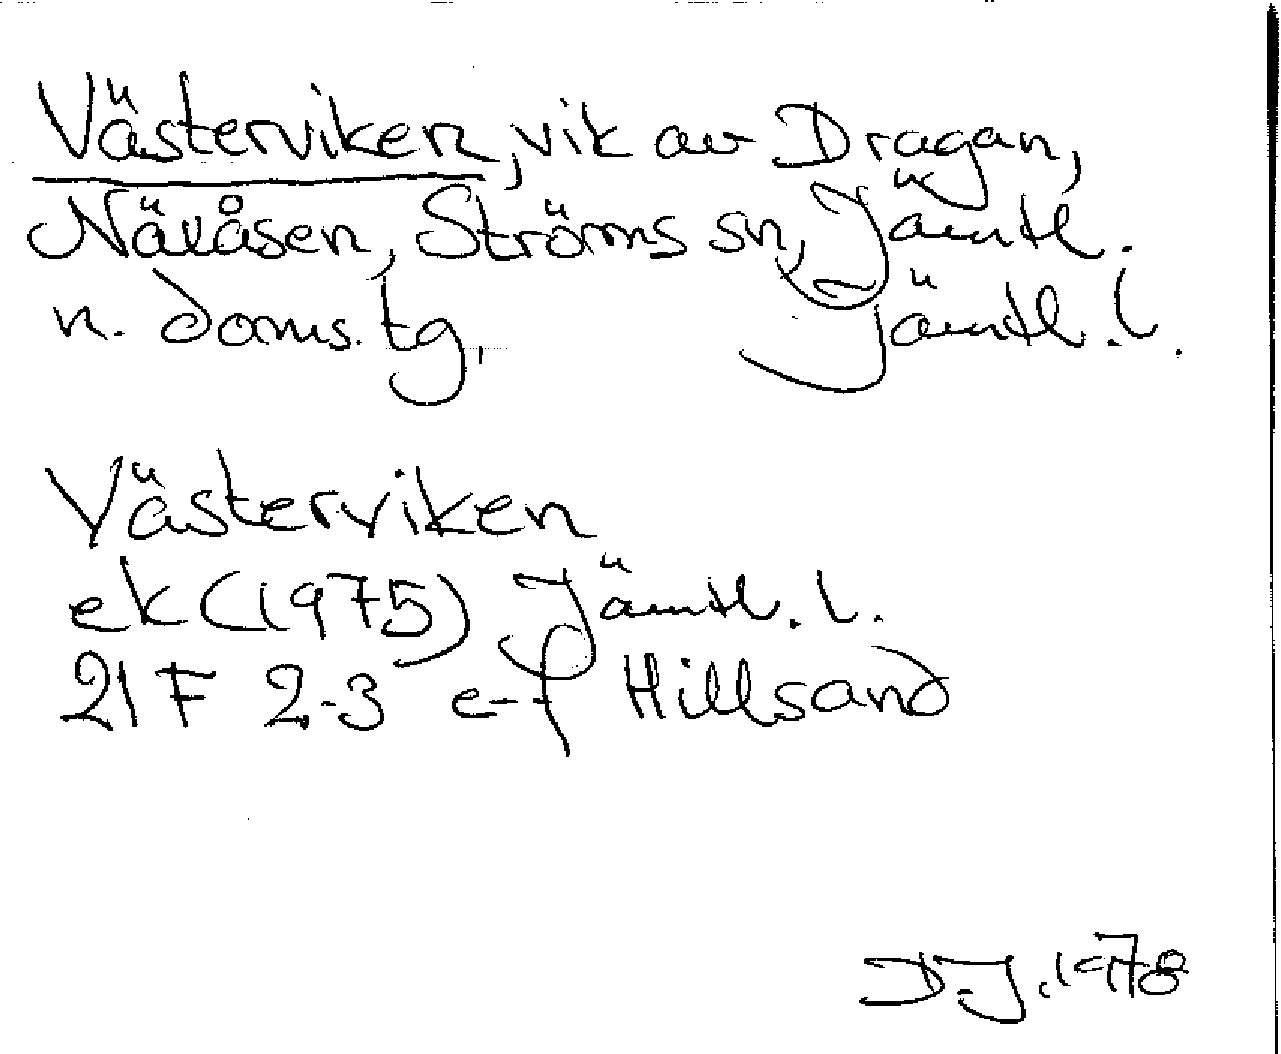 Västerviken, vik av Dragan,
Näxåsen, Ströms sn, Jämtl.
n. doms. tg. Jämtl. l.
Västerviken
ek (1975) Jämtl. l.
21 F 2-3 e-f Hillsand
D.J. 1978